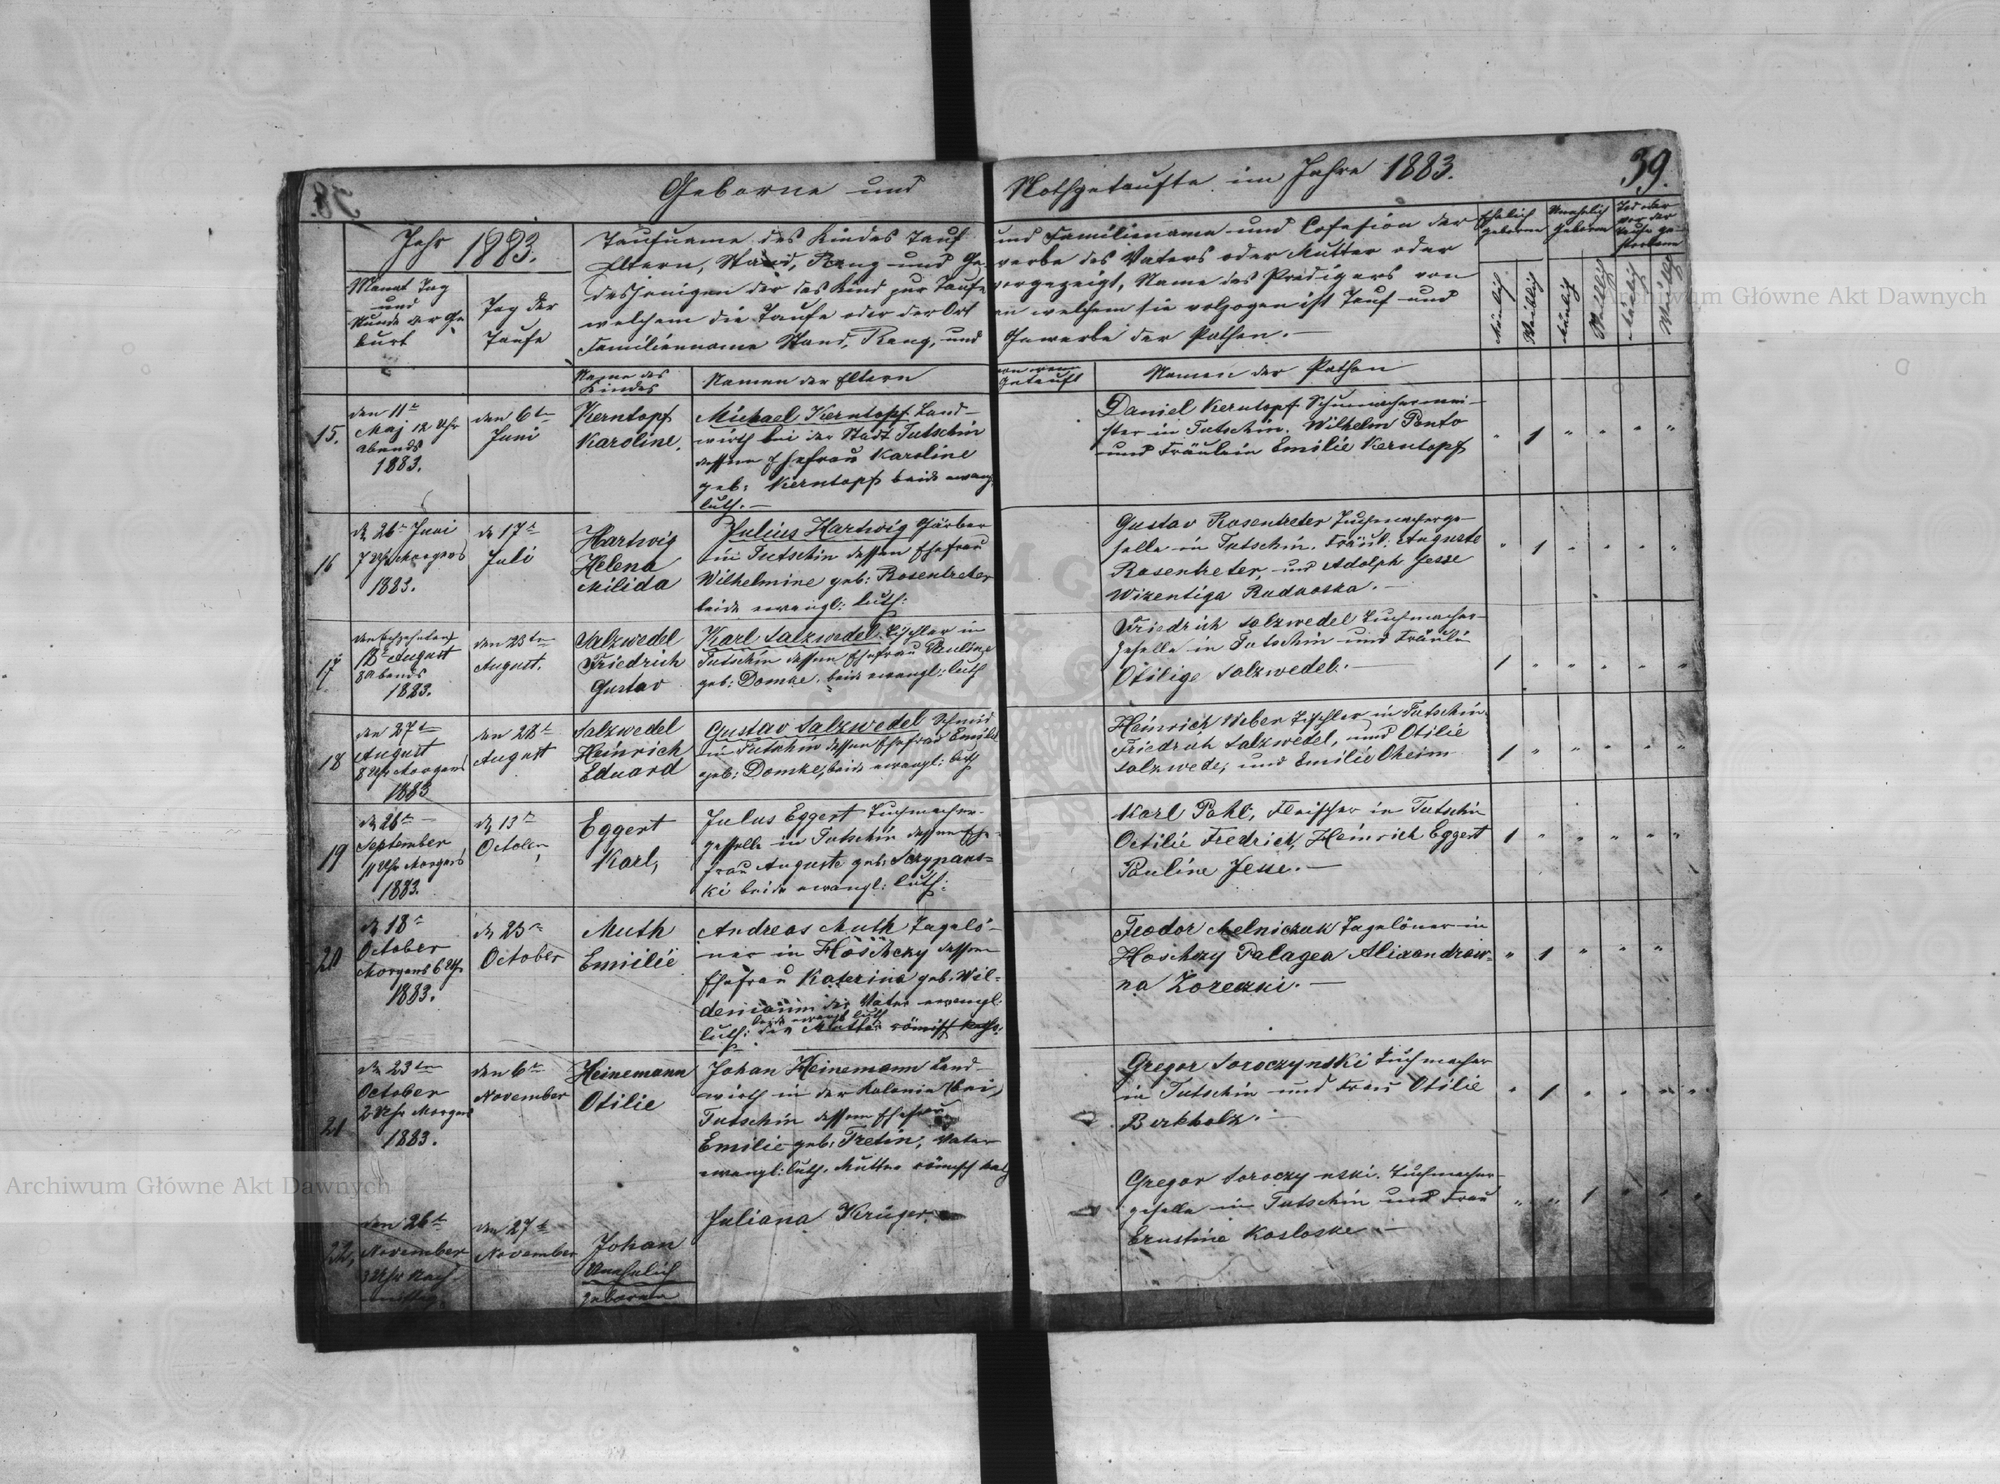 38.
Geborne und Nothgetaufte im Jahre 1883.
39.
Jahr 1883.
Monat Tag
und
Stunde der Ge
burt
Tag der
Taufe
Taufname des Kindes Tauf und Familienname und Cofesion der
Eltern, Stand, Rang und Gewerbe des Vaters oder Mutter oder
desjenigen der das Kind zur Taufe vorgezeigt, Name des Predigers von
welchem die Taufe oder der Ort an welchem sie volzogen ist Tauf und
Familienname Stand, Rang, und Gewerbe der Pathen.
Ehelich
geborne
Unehelich
geborne
Tod oder
vor der
Taufe ge-
storbene
Mänlich
Weiblich
Mänlich
Weiblich
Mänlich
Weiblich
Name des
Kindes
Namen der Eltern
von wem
getauft
Namen der Pathen
15.
den 11t
Maj 12 Uhr
Abends
1883.
den 6te
Juni
Kerntopf
Karoline.
Michael Kerntopf Land-
wirth bei der Stadt Tutschin
dessen Ehefrau Karoline
geb: Kerntopf beide ewang
luth.
Daniel Kerntopf Schumachermei-
ster in Tutschin. Wilhelm Ponto
und Fräulein Emilie Kerntopf
" 1 " " " "
16
d 26t Juni
7 Uhr Morgens
1883.
d 17t
Juli
Hartwig
Helena
Milida
Julius Hartwig Färber
in Tutschin dessen Ehefrau
Wilhelmine geb: Rosentreter
beide ewangl: luth:
Gustav Rosentreter Tuchmacherge-
selle in Tutschin. Fräul: Auguste
Rosentreter, und Adolph Jesse
Wizentiga Rudnoska.
" 1 " " " "
17
August
Abends
1883.
den 23te
August.
Salzwedel
Friedrich
Gustav
Karl Salzwedel Tischler in
Tutschin dessen Ehefrau Pauline
geb: Domke, beide ewangl: luth
Friedrich Salzwedel Tuchmacher-
geselle in Tutschin und Fräulin
Otilige Salzwedel.
1 " " " " "
18
den 27te
August
8 Uhr Morgens
1883
den 28t
August
Salzwedel
Heinrich
Eduard
Gustav Salzwedel Schmid
in Tutschin dessen Ehefrau Emilie
geb: Domke, beide ewangl: luth
Heinrich Weber Tischler in Tutschin
Friedrich Salzwedel, und Otilie
Salzwede, und Emilie Oheim
1 " " " " "
19
d 26te
September
11 Uhr Morgens
1883.
d 13te
October
Eggert
Karl,
Julus Eggert Tuchmacher-
gesselle in Tutschin dessen Ehe-
frau Auguste geb: Sczypans-
ki beide ewangl: luth:
Karl Pohl, Fleischer in Tutschin
Octilie Fredrich, Heinrich Eggert
Pauline Jesse.
1 " " " " "
20
d 18t
October
Morgens 6 Uhr
1883.
d 23te
October
Muth
Emilie
Andreas Muth Tagelö-
ner in Höschczy dessen
Ehefrau Katerina geb. Wil-
der Vater ewangl.
beide ewangl luth
luth: der Mutter römisch kath:
Feodor Melniczuk Tagelöner in
Hoschczy Palagea Alixandrow-
na Zoreczki.
" 1 " " "
21
d 23te
October
2 Uhr Morgens
1883.
den 6te
November
Heinemann
Otilie
Johan Heinemann Land-
wirth in der Kolonie (bei)
Tutschin dessen Ehefrau
Emilie geb: Tretin, Vater
ewangl: luth. Mutter römisch kat
Gregor Soroczynski Tuchmacher
in Tutschin und Frau Otilie
Berkholz.
" 1 " " " "
22,
den 26t
November
3 Uhr Nach-
mittag.
den 27t
November
Johan
Unehelich
geboren
Juliana Krüger.
Gregor Soroczynski. Tuchmacher-
geselle in Tutschin und Frau
Ernstine Kosloske
" " 1 " " "
Archiwum Główne Akt Dawnych
Archiwum Główne Akt Dawnych